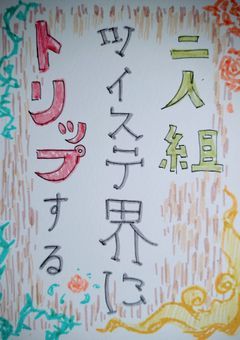 二人組
ツイステ界に
トリップする